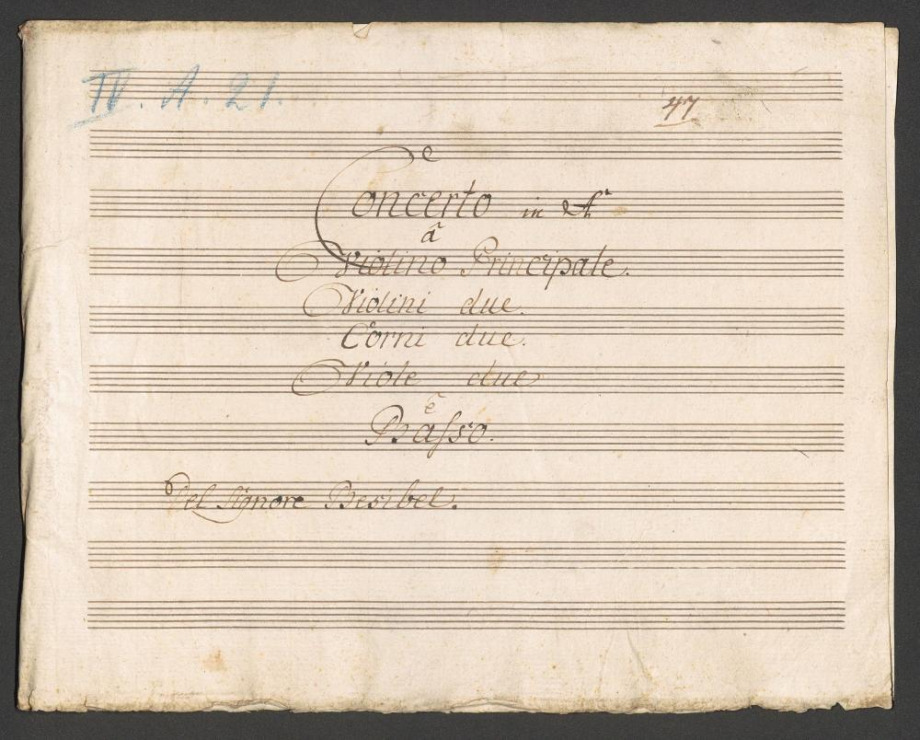 IV. A. 21.
47
Concerto in A
â
Violino Principale.
Violini due.
Corni due.
Viole due
ê
Baſso.
Del Signore Besibel.